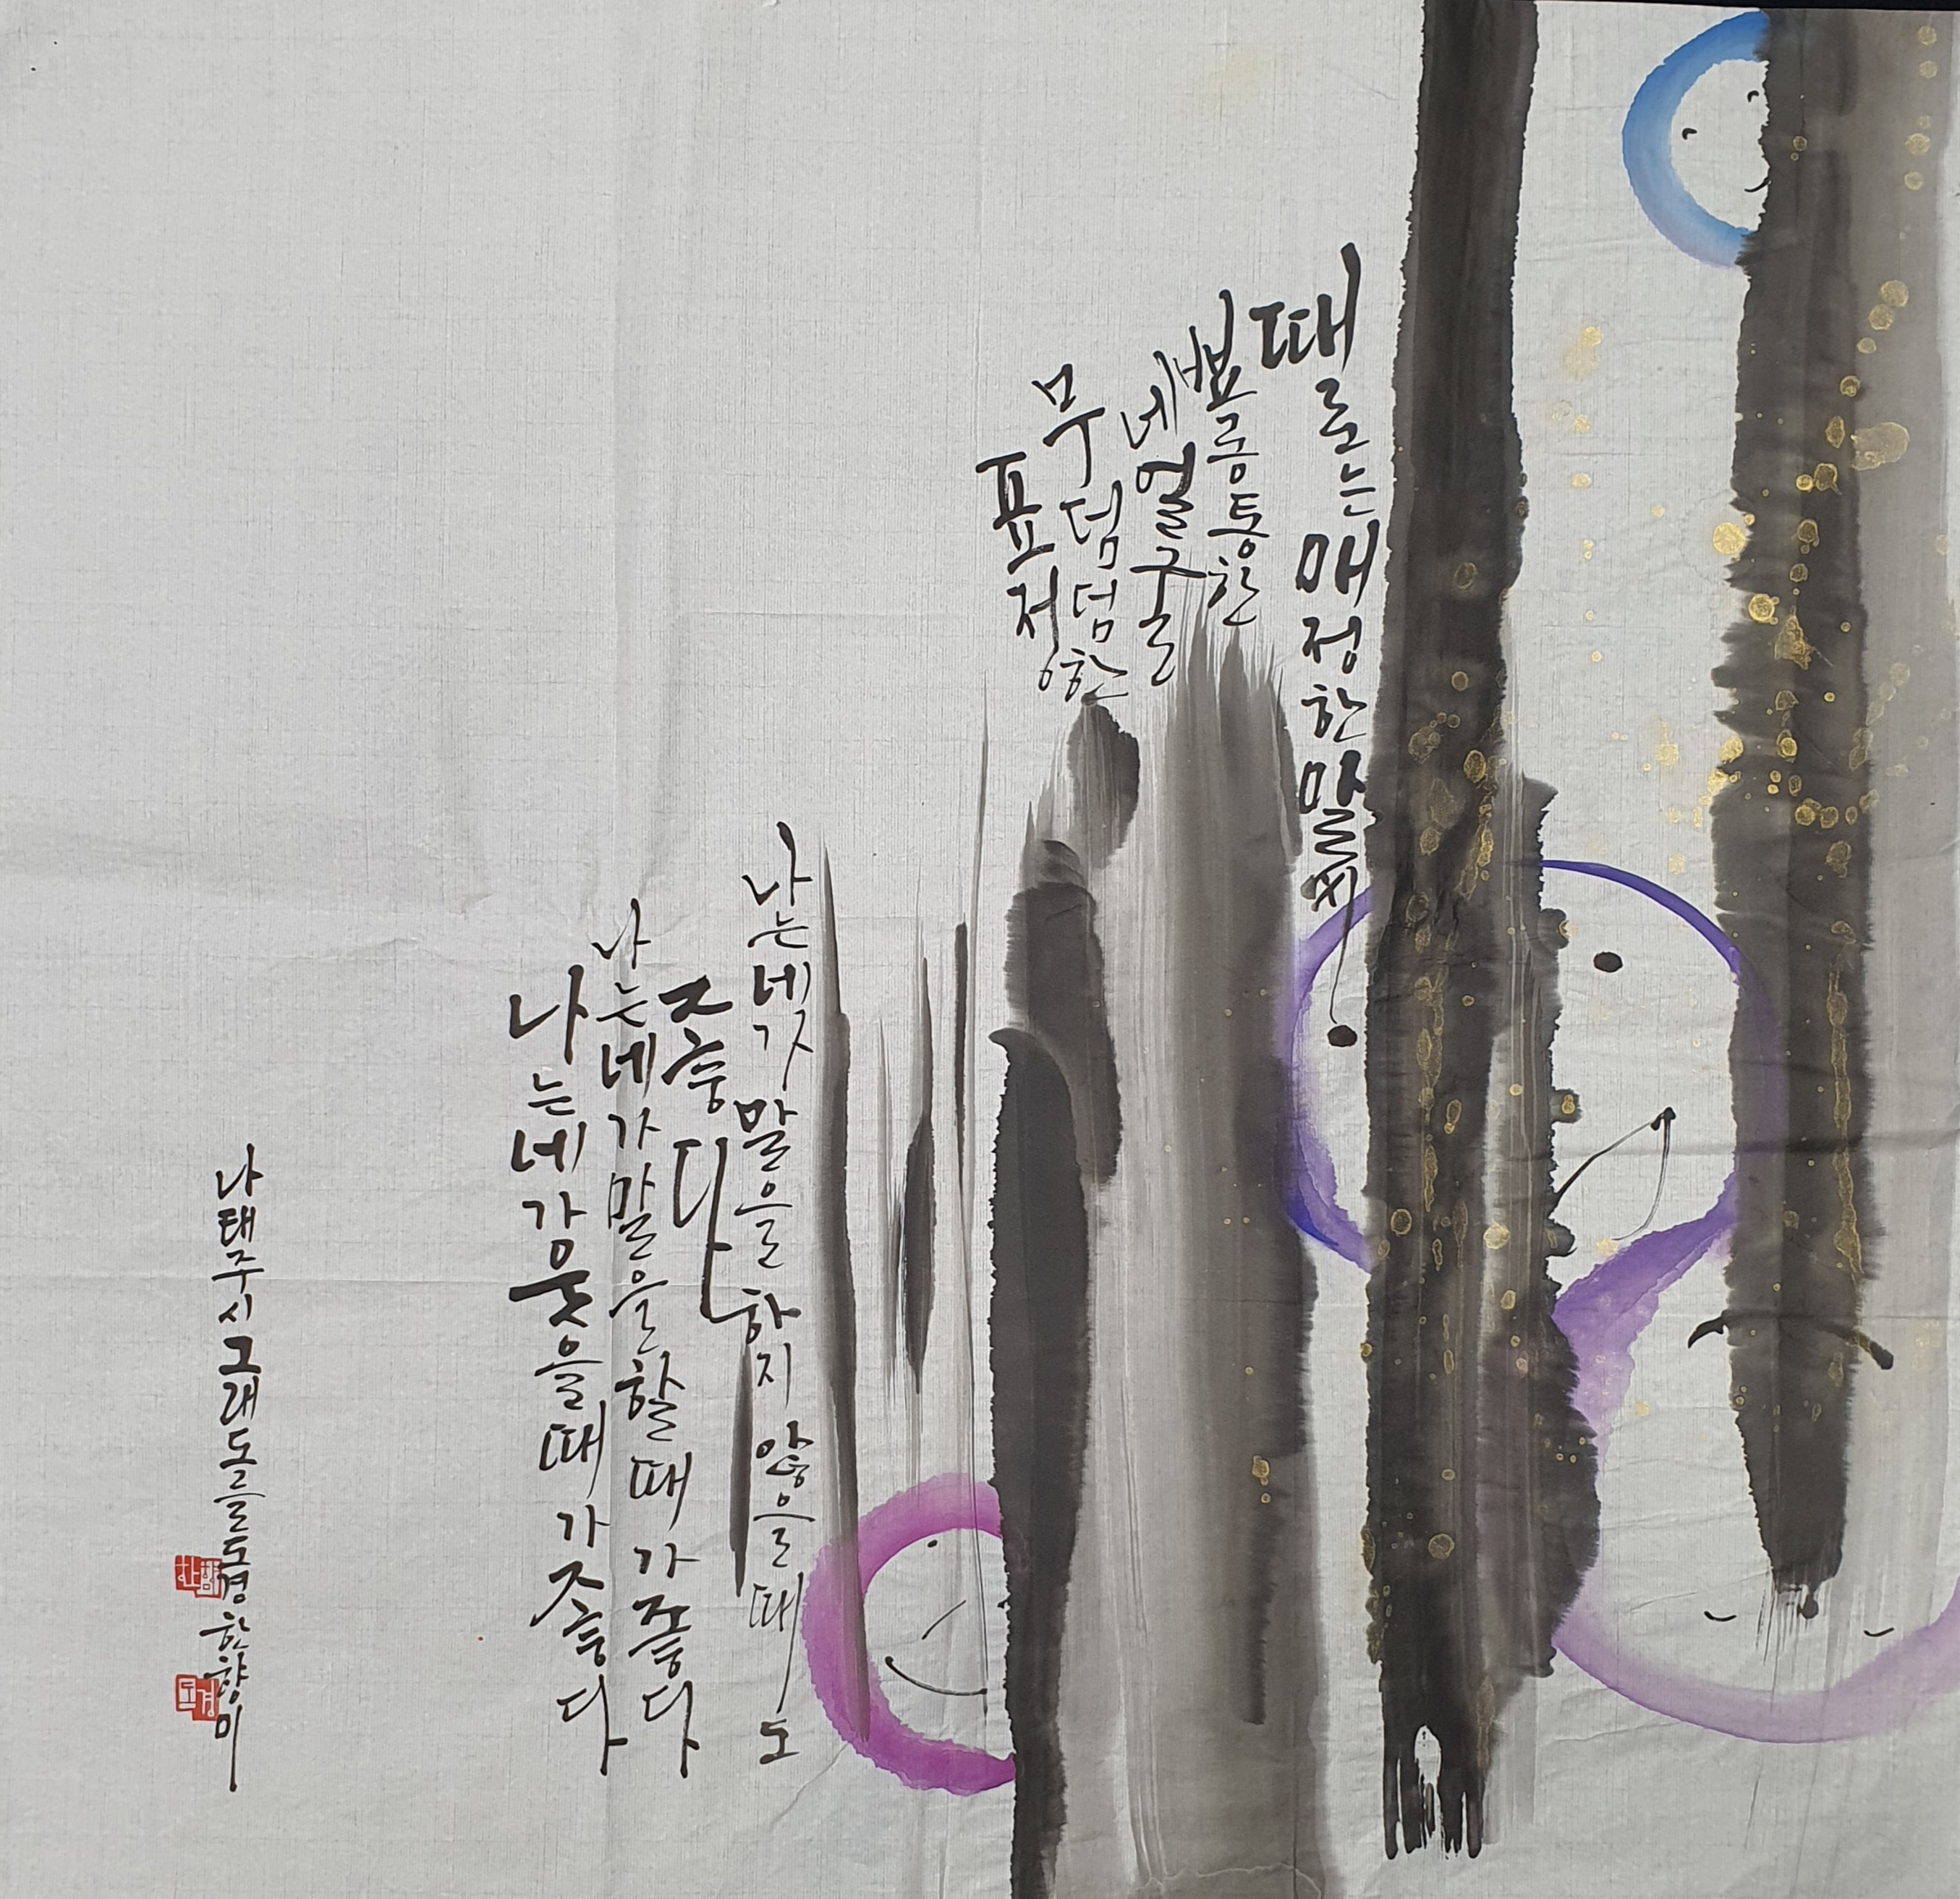 나는네가웃을때가좋다
나는네가말을할때가좋다
나는네가말을하지않을때도
좋다
뾰로통한
네얼굴
무덤덤한
표정
때로는매정한말씨
나태주시그래도를도경한향미
도경